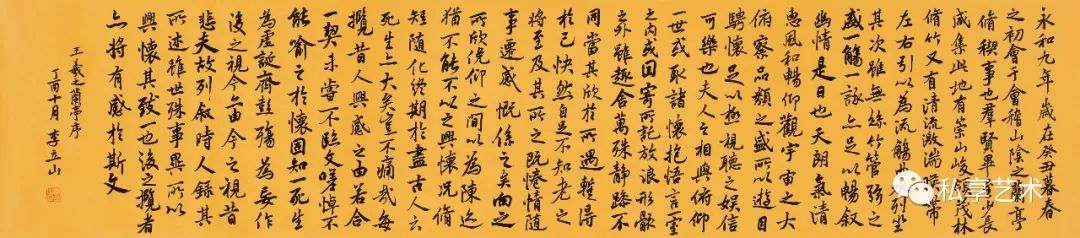 永和九年歲在癸丑暮春
之初會于會稽山陰之蘭亭
脩稧事也群賢畢至少長
咸集此地有崇山峻領茂林
脩竹又有清流激湍暎帶
左右引以為流觴列坐
其次雖無絲竹管弦之
盛一觴一詠亦足以暢敘
幽情是日也天朗氣清
惠風和暢仰觀宇宙之大
俯察品類之盛所以遊目
騁懷足以極視聽之娛信
可樂也夫人之相與俯仰
一世或取諸懷抱悟言一室
之內或因寄所託放浪形骸
之外雖趣舍萬殊靜躁不
同當其欣於所遇蹔得
於己快然自足不知老之
將至及其所之既惓情隨
事遷感慨係之矣向之
所欣俛仰之間以為陳迹
猶不能不以之興懷況脩
短隨化終期於盡古人云
死生亦大矣豈不痛哉每
攬昔人興感之由若合
一契未嘗不臨文嗟悼不
能喻之於懷固知一死生
為虛誕齊彭殤為妄作
後之視今亦由今之視昔
悲夫故列敘時人錄其
所述雖世殊事異所以
興懷其致一也後之攬者
亦將有感於斯文
王羲之蘭亭序
丁酉十月李立山
私享艺术